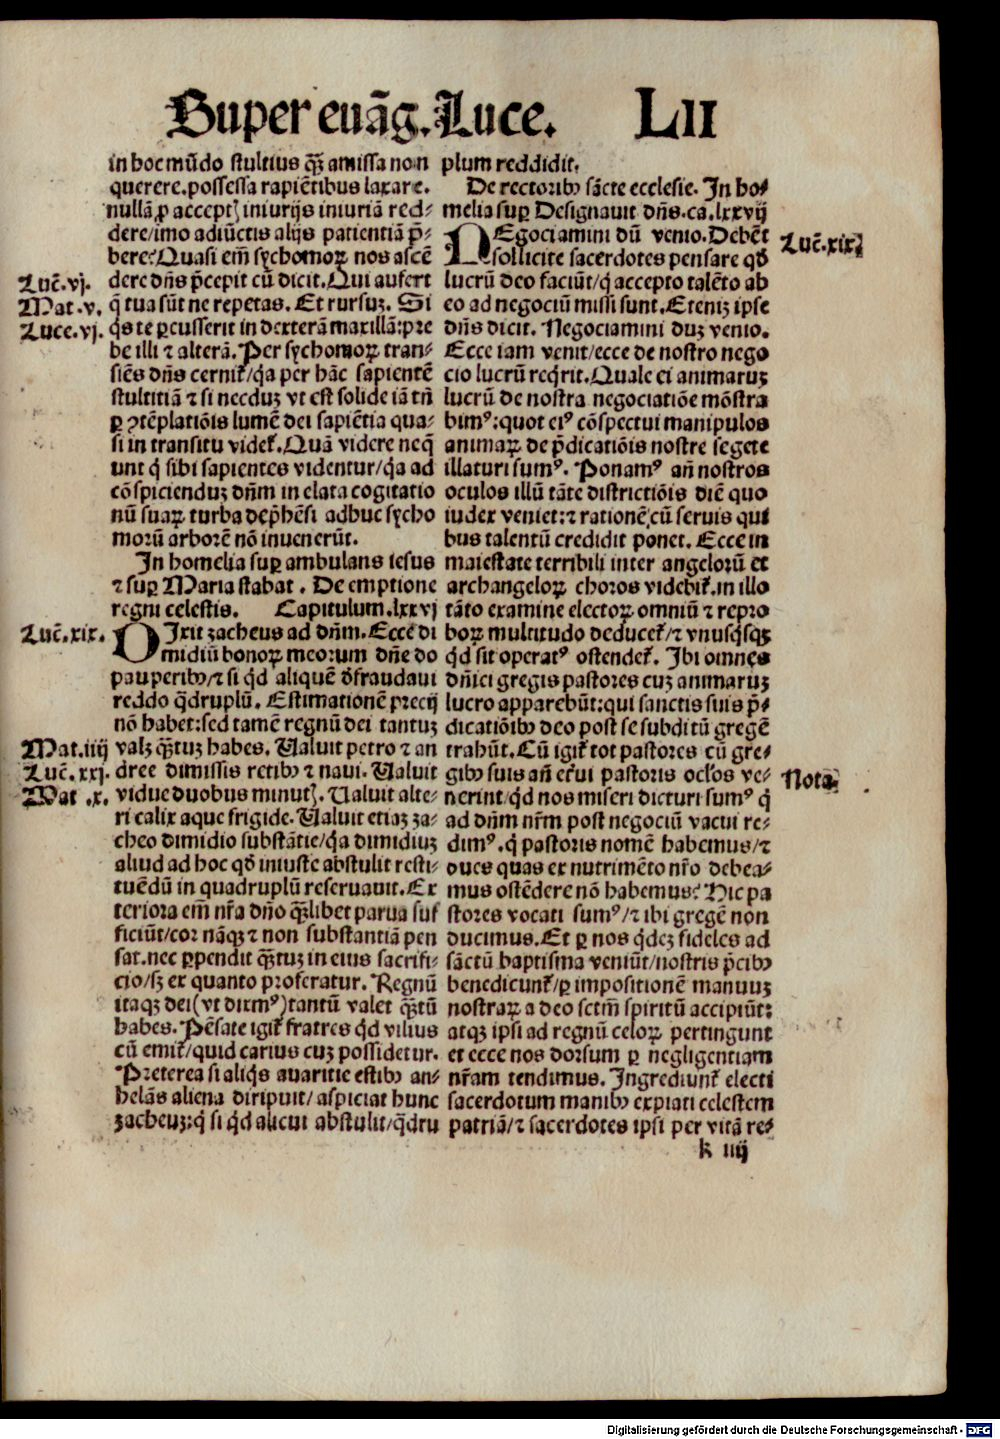 Super euāg. Luce. LII
in hoc mūdo stultius q̄ꝫ amissa non
querere. possessa rapiētibus laxare.
nullā ꝓ acceptꝭ iniurijs iniuriā red⸗
dere/imo adiūctis alijs patientiā p̄⸗
bere? Quasi em̄ sychomoꝝ nos ascē
dere dn̄s p̄cepit cū dicit. Qui aufert
q̄ tua sūt ne repetas. Et rursuꝫ. Si
q̇s te ꝑcusserit in dexterā maxillā: pre
be illi ⁊ alterā. Per sychomoꝝ tran⸗
siēs dn̄s cernit᷑/q̇a per hāc sapientē
stultitiā ⁊ si necduꝫ vt est solide iā tn̄
ꝑ ꝯtēplatiōis lumē dei sapiētia qua⸗
si in transitu videt᷑. Quā videre neq̄
unt q̇ sibi sapientes videntur/q̇a ad
cōspicienduꝫ dn̄m in elata cogitatio
nū suaꝝ turba dep̄hēsi adhuc sycho
morū arborē nō inuenerūt.
In homelia suꝑ ambulans iesus
⁊ suꝑ Maria stabat. De emptione
regni celestis. Capitulum. lxxvj
DIxit zacheus ad dn̄m. Ecce di
midiū bonoꝝ meorum dn̄e do
pauperibꝰ/⁊ si q̇d aliquē d̄fraudaui
reddo q̇druplū. Estimationē precij
nō habet: sed tamē regnū dei tantuꝫ
valꝫ q̄ꝫtuꝫ habes. Ualuit petro ⁊ an
dree dimissis retibꝰ ⁊ naui. Ualuit
vidue duobus minutꝭ. Ualuit alte⸗
ri calix aque frigide. Ualuit etiaꝫ za⸗
cheo dimidio substātie/q̇a dimidiuꝫ
aliud ad hoc qd̄ iniuste abstulit resti⸗
tuēdū in quadruplū reseruauit. Ex
teriora em̄ nr̄a dn̄o q̄ꝫlibet parua suf
ficiūt/cor nāqꝫ ⁊ non substantiā pen
sat. nec ꝑpendit q̄ꝫtuꝫ in eius sacrifi⸗
cio/sꝫ ex quanto proferatur. Regnū
itaqꝫ dei (vt dixmꝰ) tantū valet q̄ꝫtū
habes. Pēsate igit᷑ fratres q̇d vilius
cū emit᷑/quid carius cuꝫ possidetur.
Preterea si aliq̇s auaritie estibꝰ an⸗
helās aliena diripuit/ aspiciat hunc
zacheuꝫ: q̇ si q̇d alicui abstulit/q̇dru
plum reddidit.
De rectoribꝰ sācte ecclesie. In ho⸗
melia suꝑ Designauit dn̄s. ca. lxxvij
NEgociamini dū venio. Debēt
sollicite sacerdotes pensare qd̄
lucrū deo faciūt/q̇ accepto talēto ab
eo ad negociū missi sunt. Eteniꝫ ipse
dn̄s dicit. Negociamini duꝫ venio.
Ecce iam venit/ecce de nostro nego
cio lucrū req̇rit. Quale ei animaruꝫ
lucrū de nostra negociatiōe mōstra
bimꝰ: quot eiꝰ cōspectui manipulos
animaꝝ de p̄dicatiōis nostre segete
illaturi sumꝰ. Ponamꝰ an̄ nostros
oculos illū tāte districtiōis diē quo
iudex veniet: ⁊ rationē cū seruis qui
bus talentū credidit ponet. Ecce in
maiestate terribili inter angelorū et
archangeloꝝ choros videbit᷑. in illo
tāto examine electoꝝ omniū ⁊ repro
boꝝ multitudo deducet᷑/⁊ vnusq̇sqꝫ
q̇d sit operatꝰ ostendet᷑. Ibi omnes
dn̄ici gregis pastores cuꝫ animaruꝫ
lucro apparebūt: qui sanctis suis p̄⸗
dicatiōibꝰ deo post se subditū gregē
trahūt. Cū igit᷑ tot pastores cū gre⸗
gibꝰ suis an̄ et᷑ni pastoris oc̄los ve⸗
nerint/q̇d nos miseri dicturi sumꝰ q̇
ad dn̄m nr̄m post negociū vacui re⸗
dimꝰ. q̇ pastoris nomē habemus/⁊
oues quas ex nutrimēto nr̄o debea⸗
mus ostēdere nō habemus? Hic pa
stores vocati sumꝰ/⁊ ibi gregē non
ducimus. Et ꝑ nos q̇deꝫ fideles ad
sāctū baptisma veniūt/nostris p̄cibꝰ
benedicunt᷑/ꝑ impositionē manuuꝫ
nostraꝝ a deo sctm̄ spiritū accipiūt:
atqꝫ ipsi ad regnū celoꝝ pertingunt
et ecce nos dorsum ꝑ negligentiam
nr̄am tendimus. Ingrediunt᷑ electi
sacerdotum manibꝰ expiati celestem
patriā/⁊ sacerdotes ipsi per vitā re⸗
k iiij
Luc̄. vj.
Mat. v.
Luce. vj.
Luc̄. xix.
Mat. iiij
Luc̄. xxj.
Mat .x.
Luc̄. xix.
Nota.
Digitalisierung gefördert durch die Deutsche Forschungsgemeinschaft - DFG